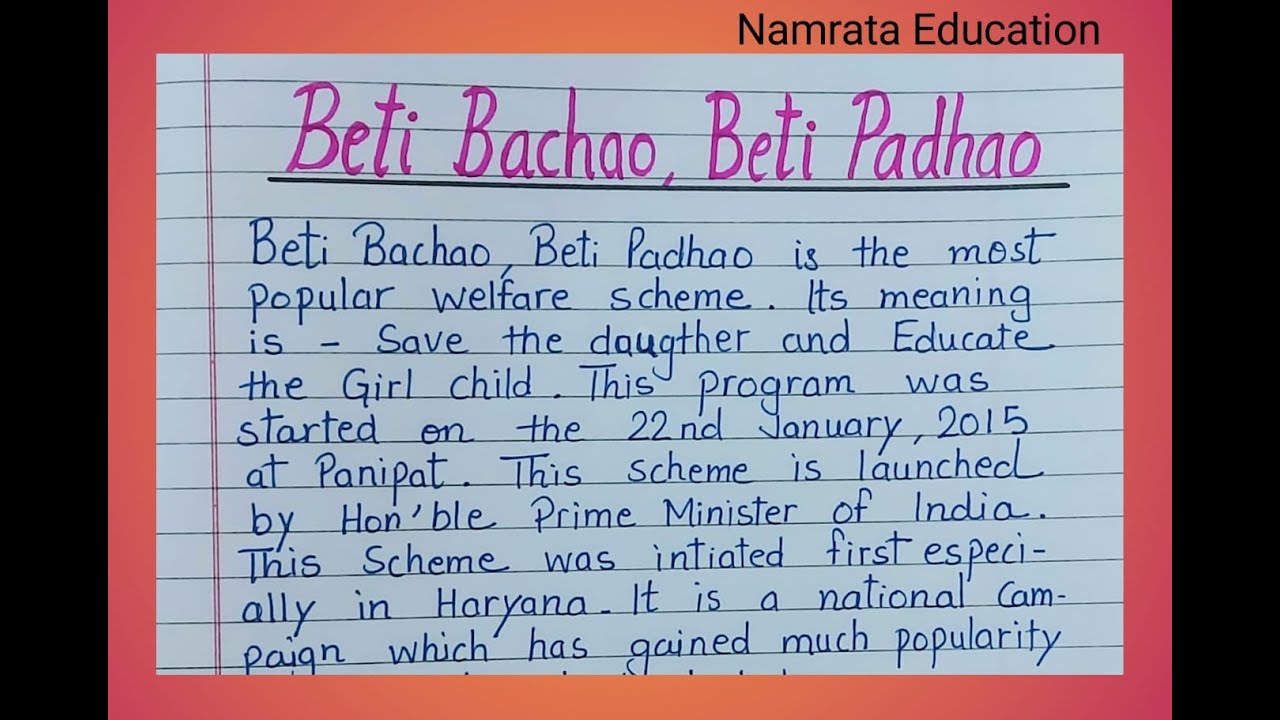 Namrata Education
Beti Bachao, Beti Padhao
Beti Bachao, Beti Padhao is the most
popular welfare scheme. Its meaning
is - Save the daugther and Educate
the Girl child. This program was
started on the 22nd January, 2015
at Panipat. This scheme is launched
by Hon'ble Prime Minister of India.
This Scheme was intiated first especi-
ally in Haryana. It is a national Cam-
paign which has gained much popularity